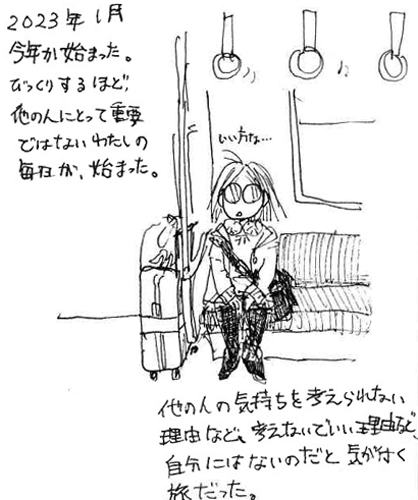 2023年1月
今年が始まった。
びっくりするほど、
他の人にとって重要
ではないわたしの
毎日が、始まった。
いい方な…
他の人の気持ちを考えられない
理由など、考えないでいい理由など、
自分にはないのだと気が付く
旅だった。